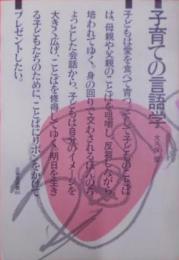 子育ての言語学
大久保 愛
■子どもは愛を食べて育つ。そして子どものことば
は、母親や父親のことばを咀嚼し、反芻しながら、
培われてゆく。身の回りで交わされるほんのち
ょっとした会話から、子どもは自分のイメージを
大きく広げ、ことばを修得してゆく。明日を生き
る子どもたちのために、ことばにリボンをかけて
プレゼントしたい。